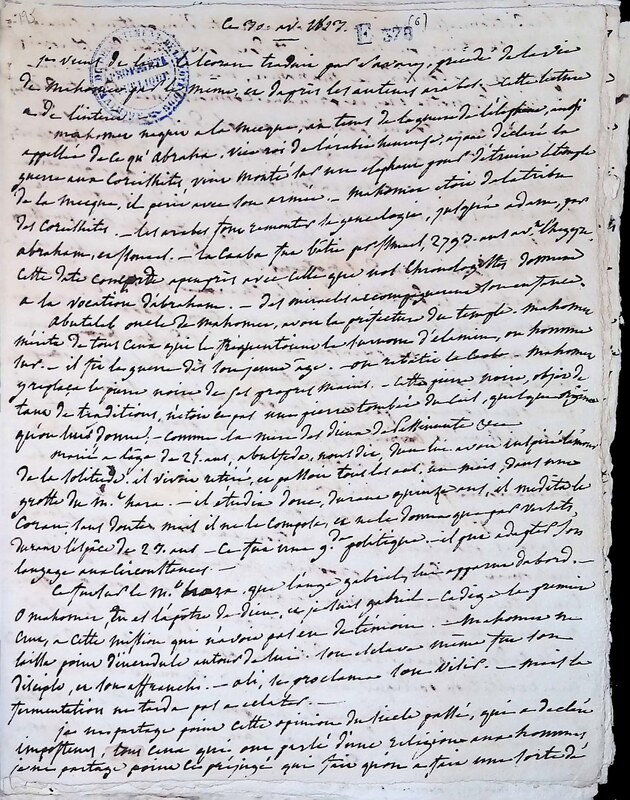 ce 30. av. 1827. E 378 (6)
je viens de lire l'alcoran traduit par Savary, précédé de la vie
de mahomet par le meme, et d'après les auteurs arabes - cette lecture
a de l'interet
mahomet naquit a la mecque, au tems de la guerre de l'éléphant, ainsi
appellée de ce qu'Abraha, vice roi de l'arabie heureuse, ayant déclaré la
guerre aux Coreishites, vint monté sur un elephant pour détruire le temple
de la mecque, il périt avec son armée. - Mahomet etoit de la tribu
des Coreishites. - les arabes font remonter sa genealogie, jusqu'à adam, par
abraham, et Ismael. - la Caaba fut bâtie par Ismael, 2793. ans avt. l'hegyre.
Cette date concorde apeuprès avec celle que nos Chronologistes donnent
a la vocation d'abraham. - des miracles accompagnerent son enfance.
Abutaleb oncle de mahomet, avoit la préfecture du temple. Mahomet
mérita de tous ceux qui le frequentoient le surnom d'elamin, ou homme
sur. - il fit la guerre dès son jeune âge. - on rebâtit la Caaba - Mahomet
y replaça la pierre noire de ses propres mains. - Cette pierre noire, objet de
tant de traditions, n'etoit ce pas une pierre tombée du ciel, quelqu'origine
qu'on lui donne. - Comme la mere des dieux de Pessinunte &ca
marié a l'age de 25. ans, abulfeda, nous dit, dieu lui avoit inspiré l'amour
de la solitude. il vivoit retiré, et passoit tous les ans, un mois, dans une
grotte du mt. hara. - il etudia donc, durant quinze ans, il medita le
Coran, sans doute, mais il ne le composa, et ne le donna que par versets,
durant l'espace de 23. ans - Ce fut une gde. politique. - il put adapter son
langage aux circonstances. -
Ce fut sur le mt. hara, que l'ange gabriel, lui apparut d'abord. -
O mahomet, tu es l'apôtre de dieu, et je suis gabriel - Cadige la premiere
crut, a cette mission qui n'avoit pas eu de témoins. - Mahomet ne
laissa point d'incredule autour de lui. son esclave même fut son
disciple, et son affranchi. - ali, se proclama son Visir. - mais la
fermentation ne tarda pas a eclater. -
je ne partage point cette opinion du siecle passé, qui a declaré
imposteurs, tous ceux qui ont parlé d'une religion aux hommes
je ne partage point ce préjugé qui fait qu'on a fait une sorte de